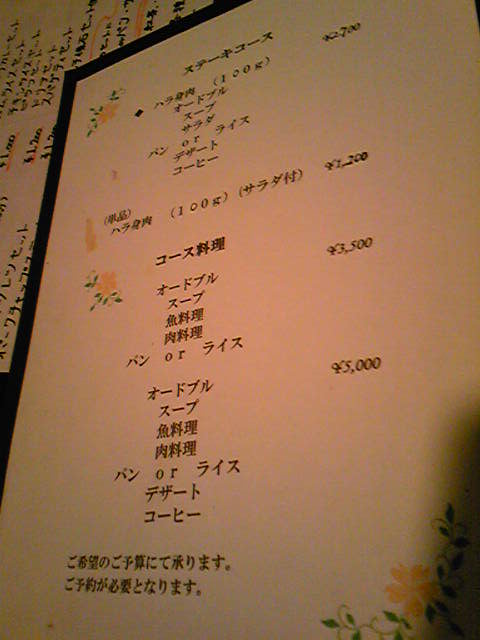 ステーキコース ¥2,700
◆ ハラ身肉 (100g)
オードブル
スープ
サラダ
パン or ライス
デザート
コーヒー
(単品) ¥1,200
ハラ身肉 (100g) (サラダ付)
コース料理 ¥3,500
オードブル
スープ
魚料理
肉料理
パン or ライス
¥5,000
オードブル
スープ
魚料理
肉料理
パン or ライス
デザート
コーヒー
ご希望のご予算にて承ります。
ご予約が必要となります。
¥1,000
¥1,200